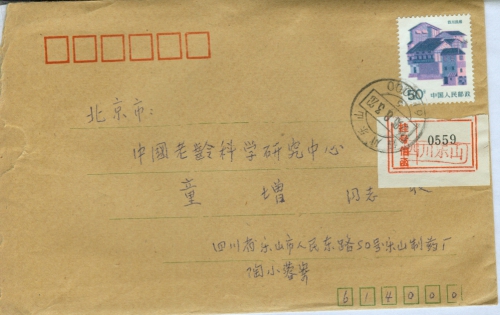 50
中国人民邮政
挂号信函
0559
四川乐山
北京市:
中國老龄科学研究中心
童 增 同志 收
四川省乐山市人民东路50号乐山制药厂
陶小蓉寄
614000